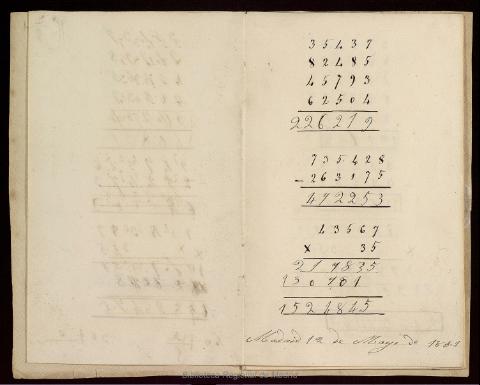 35437
82485
45793
62504
226219
735428
-263175
472253
43567
x 35
217835
130701
1524845
Madrid 12 de Mayo de
Biblioteca Regional de Madrid